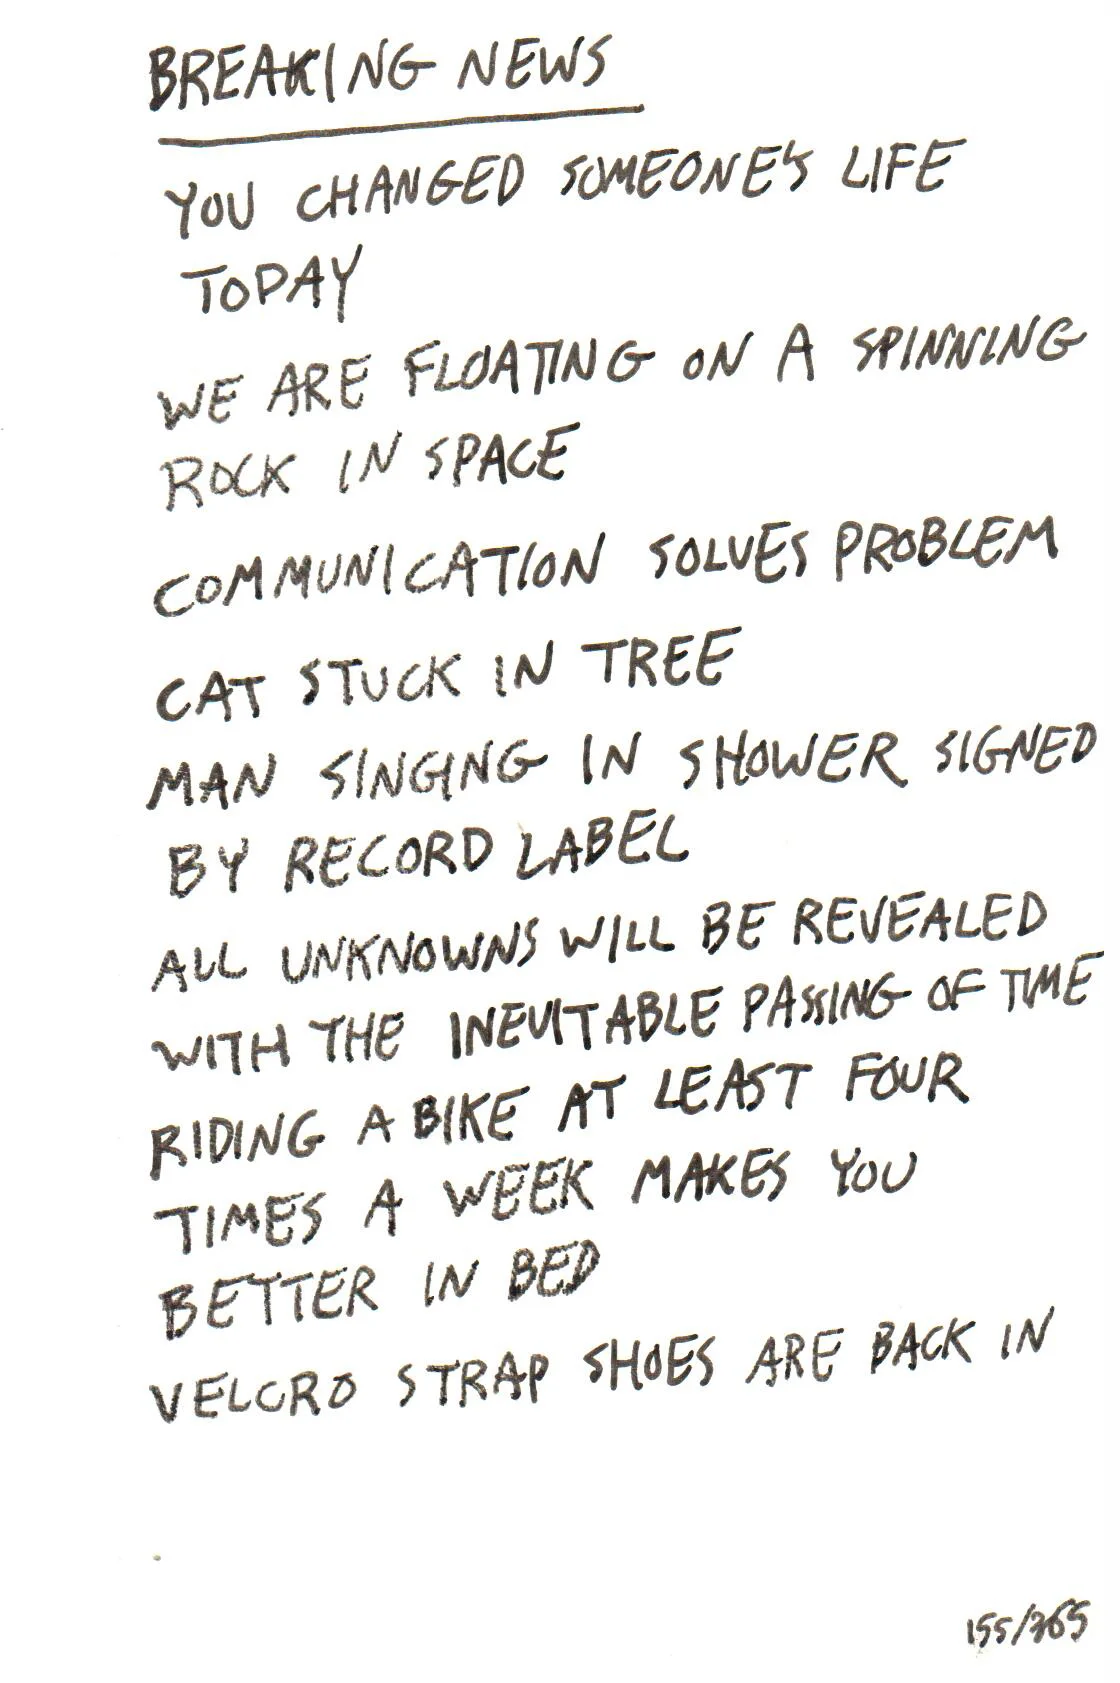 BREAKING NEWS
YOU CHANGED SOMEONE'S LIFE
TODAY
WE ARE FLOATING ON A SPINNING
ROCK IN SPACE
COMMUNICATION SOLVES PROBLEM
CAT STUCK IN TREE
MAN SINGING IN SHOWER SIGNED
BY RECORD LABEL
ALL UNKNOWNS WILL BE REVEALED
WITH THE INEVITABLE PASSING OF TIME
RIDING A BIKE AT LEAST FOUR
TIMES A WEEK MAKES YOU
BETTER IN BED
VELCRO STRAP SHOES ARE BACK IN
155/365